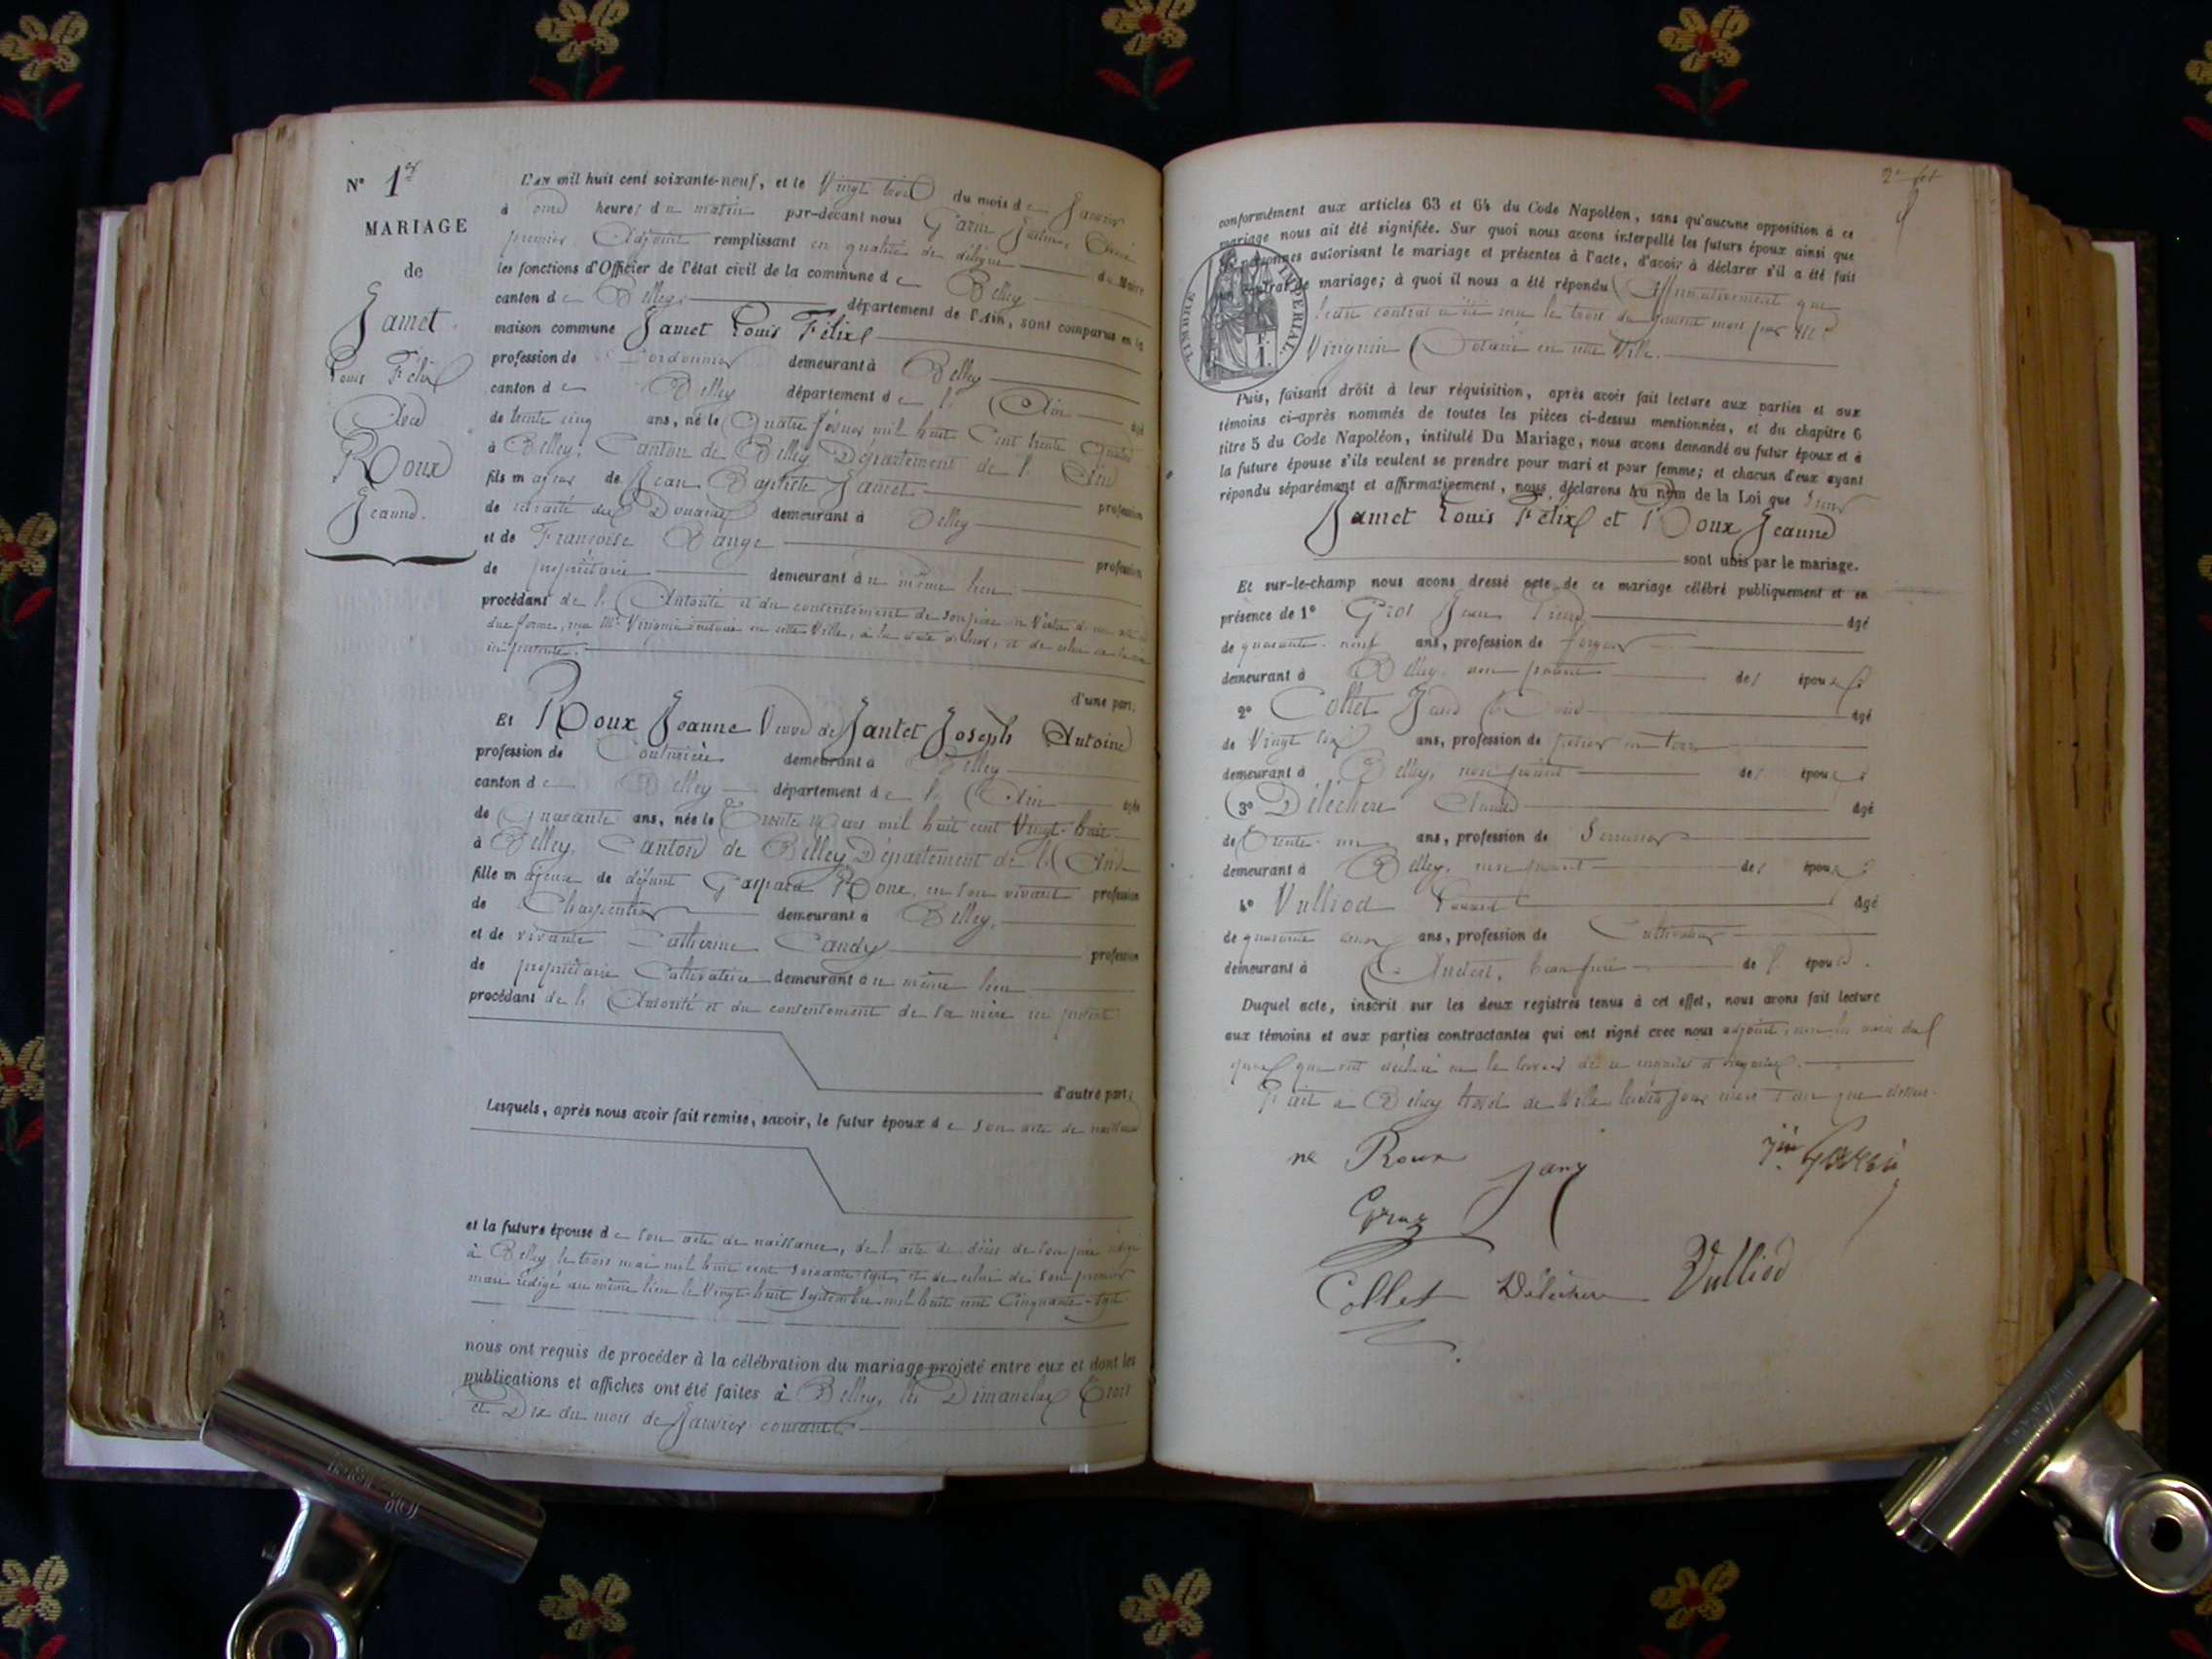 N° 1er
MARIAGE
de
Jamet
Louis Félix
Avec
Roux
Jeanne.
L'an mil huit cent soixante-neuf, et le Vingt trois du mois de Janvier
à onze heures du matin par-devant nous Garin
premier Adjoint remplissant en qualité de délégué du Maire
les fonctions d'Officier de l'état civil de la commune de Belley
canton de Belley département de l'Ain, sont comparus en la
maison commune Jamet Louis Félix
profession de Cordonnier demeurant à Belley
canton de Belley département de l'Ain âgé
de trente cinq ans, né le Quatre février mil huit Cent trente quatre
à Belley, Canton de Belley Département de l'Ain
fils majeur de Jean Baptiste Jamet profession
de retraité des Douanes demeurant à Belley
et de Françoise Bange profession
de propriétaire demeurant au même lieu
procédant de l'Autorité et du consentement de son père
due forme, en cette Ville, à la date
d'une part,
Et Roux Jeanne Veuve de Jantet Joseph Antoine
profession de Couturière demeurant à Belley
canton de Belley département de l'Ain âgée
de Quarante ans, née le Trente Mars mil huit cent Vingt-huit
à Belley, Canton de Belley Département de l'Ain
fille majeure de défunt Gaspard Roux, en son vivant profession
de Charpentier demeurant à Belley,
et de vivante Catherine Candy profession
de propriétaire Cultivatrice demeurant au même lieu
procédant de l'Autorité et du consentement de sa mère ici présente
d'autre part;
Lesquels, après nous avoir fait remise, savoir, le futur époux de son acte de naissance
et la future épouse de son acte de naissance, de l'acte de décès de son père rédigé
à Belley le trois mai mil huit cent soixante-sept, et de celui de son premier
mari rédigé au même lieu le Vingt-huit Septembre mil huit cent Cinquante-sept
nous ont requis de procéder à la célébration du mariage projeté entre eux et dont les
publications et affiches ont été faites à Belley, les Dimanches Trois
et Dix du mois de Janvier courant
conformément aux articles 63 et 64 du Code Napoléon, sans qu'aucune opposition à ce
mariage nous ait été signifiée. Sur quoi nous avons interpellé les futurs époux ainsi que
les personnes autorisant le mariage et présentes à l'acte, d'avoir à déclarer s'il a été fait
un contrat de mariage; à quoi il nous a été répondu Affirmativement que
leur contrat a été reçu le trois du présent mois par Me
Vingnin Notaire en cette Ville.
TIMBRE IMPÉRIAL
Puis, faisant droit à leur réquisition, après avoir fait lecture aux parties et aux
témoins ci-après nommés de toutes les pièces ci-dessus mentionnées, et du chapitre 6
titre 5 du Code Napoléon, intitulé Du Mariage, nous avons demandé au futur époux et à
la future épouse s'ils veulent se prendre pour mari et pour femme; et chacun d'eux ayant
répondu séparément et affirmativement, nous déclarons au nom de la Loi que
Jamet Louis Félix et Roux Jeanne
sont unis par le mariage.
Et sur-le-champ nous avons dressé acte de ce mariage célébré publiquement et en
présence de 1° Gros Jean Pierre âgé
de quarante-neuf ans, profession de forgeur
demeurant à Belley, non parent des époux
2° Collet Jean âgé
de Vingt six ans, profession de potier en terre
demeurant à Belley, non parent des époux
3° Délechère Claude âgé
de Trente-un ans, profession de Serrurier
demeurant à Belley, non parent des époux
4° Vulliod âgé
de quarante ans, profession de Cultivateur
demeurant à Andert, beau frère de l'épouse.
Duquel acte, inscrit sur les deux registres tenus à cet effet, nous avons fait lecture
aux témoins et aux parties contractantes qui ont signé avec nous adjoint,
Fait à Belley hôtel de Ville lesdits jour mois et an que dessus.
ne Roux
Garin
Gros
Collet Délechère Vulliod